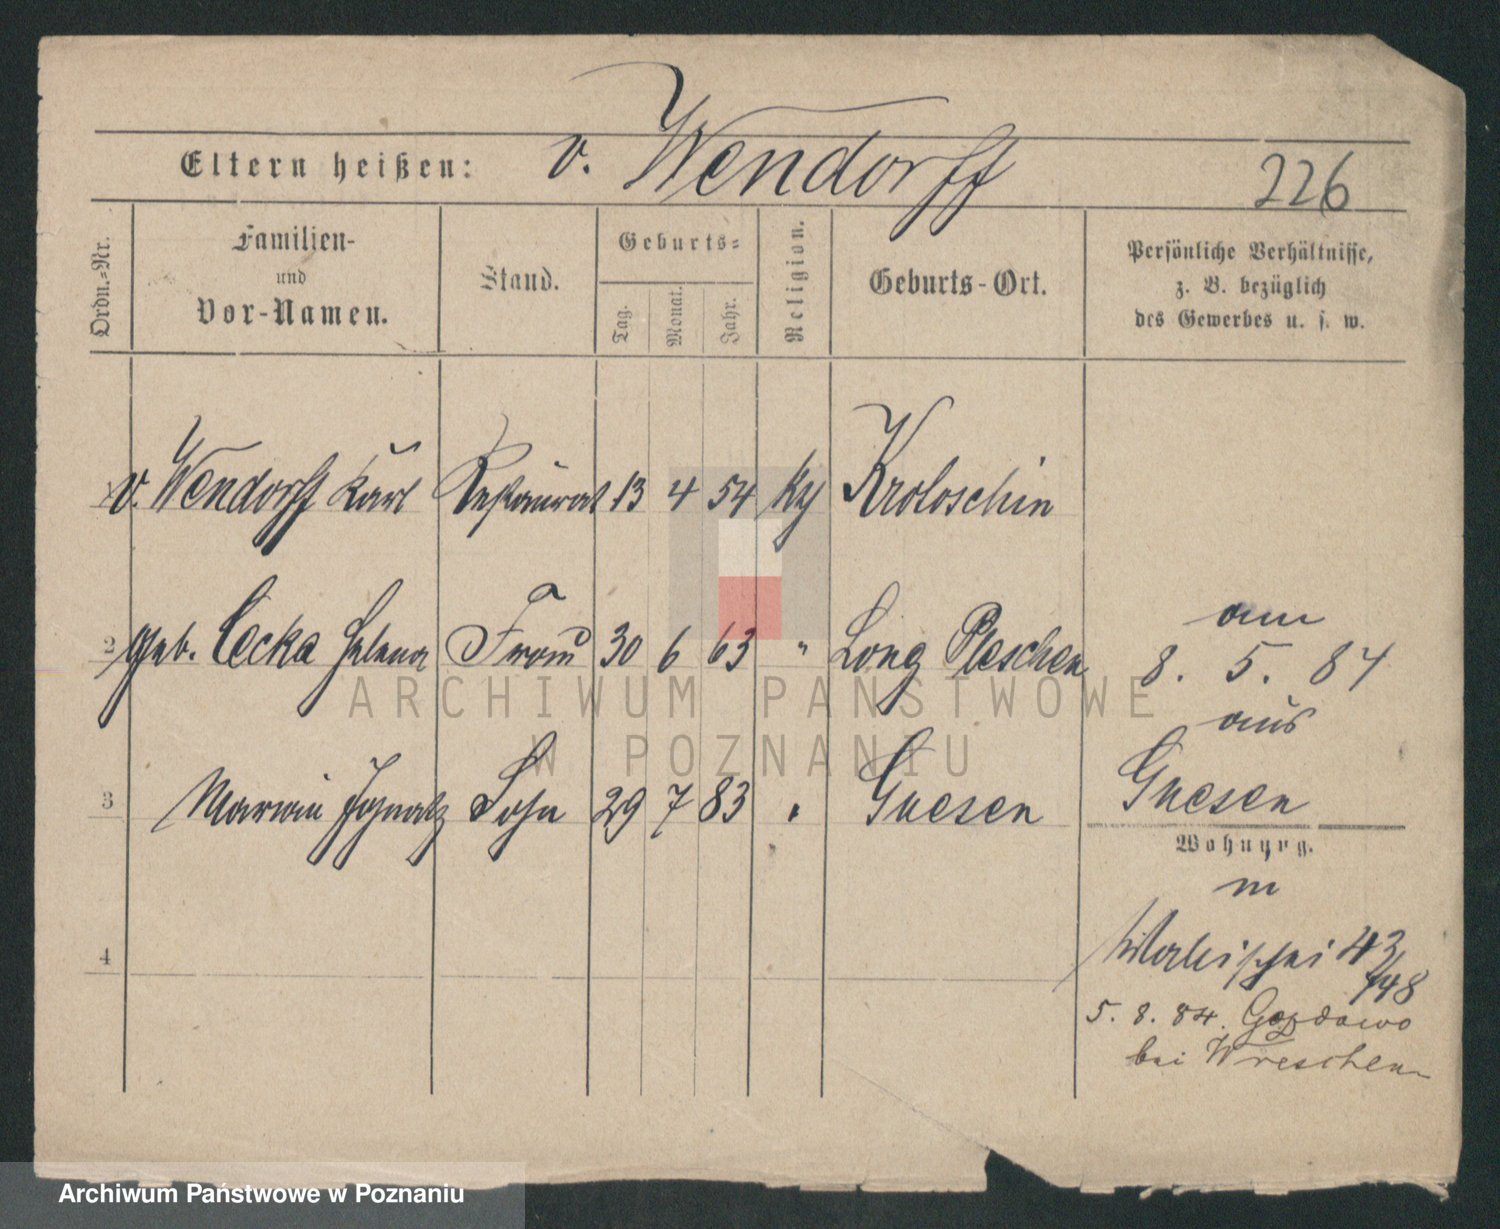 Eltern heißen: v. Wendorff 226
Ordn.-Nr.
Familien-
und
Vor-Namen.
Stand.
Geburts-
Tag.
Monat.
Jahr.
Religion.
Geburts-Ort.
Persönliche Verhältnisse,
z. B. bezüglich
des Gewerbes u. s. w.
v. Wendorff Karl Restaurat 13 4 54 Kroloschin
2 geb. Cecka Helena Frau 30 6 63 " Long Pleschen
am
8. 5. 84
aus
Gnesen
3 Marian Ignatz Sohn 29 7 83 " Gnesen
Wohnung.
4
Wallischei 43
5. 8. 84. Gozdowo
bei Wreschen
ARCHIWUM PAŃSTWOWE
W POZNANIU
Archiwum Państwowe w Poznaniu